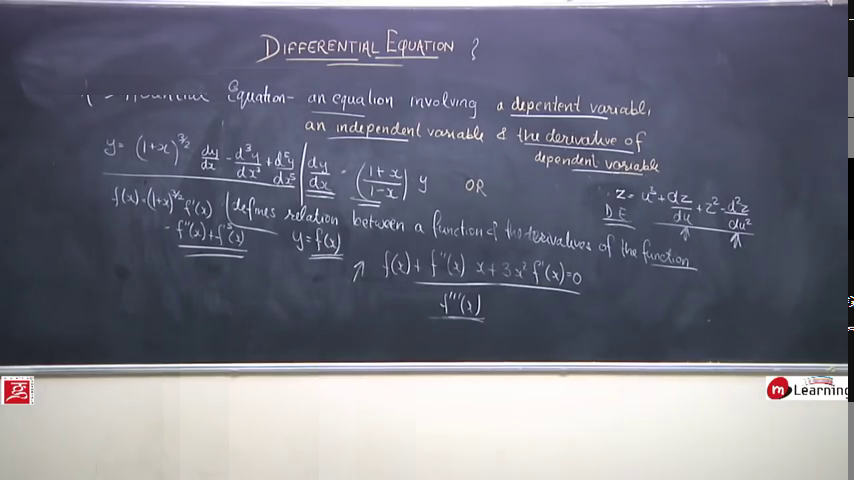 DIFFERENTIAL EQUATION ?
Equation- an equation involving a depentent variable,
an independent variable & the derivative of
dependent variable
y = (1+x)^3/2 dy/dx - d³y/dx³ + d⁵y/dx⁵ | dy/dx = (1+x/1-x) y OR
z = u² + dz/du + z² - d²z/du²
D E
f(x) = (1+x)^3/2 f'(x)
- f'''(x) + f⁵(x)
defines relation between a function & the derivatives of the function
y = f(x)
↗ f(x) + f''(x) x + 3x² f'(x) = 0
f''''(x)
m Learning